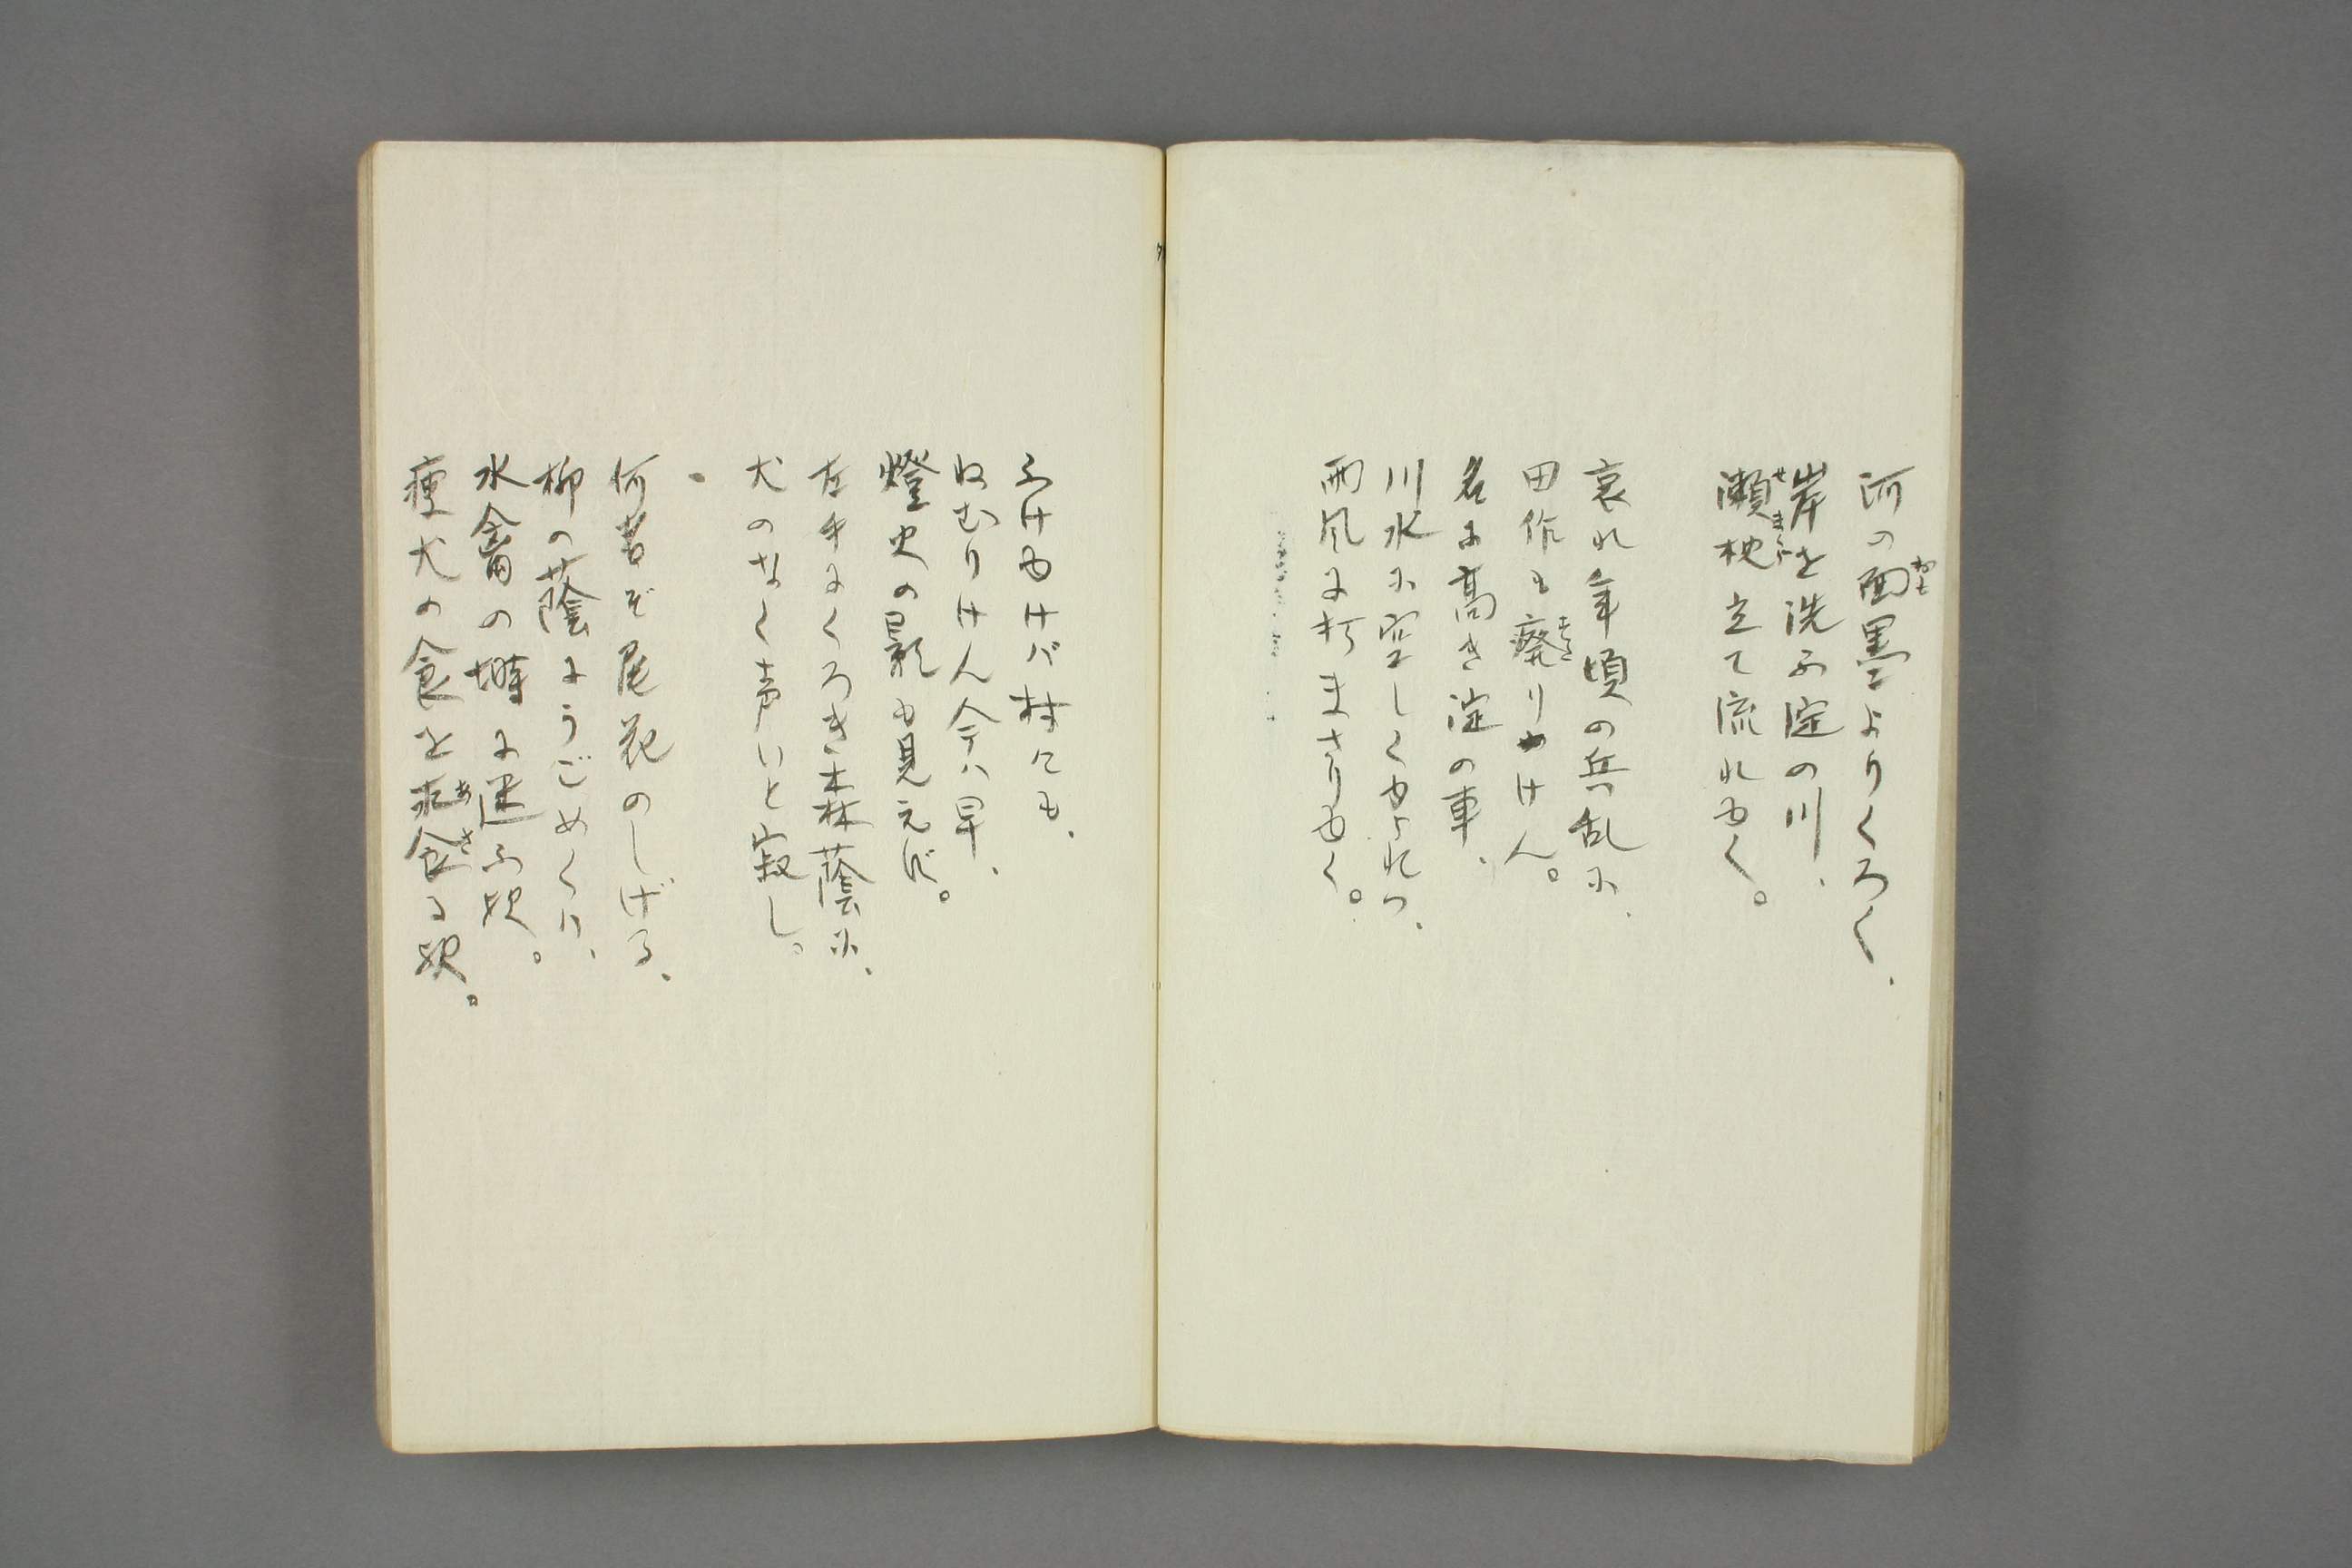 河の面墨よりくろく、
おも
岸を洗ふ淀の川、
瀬枕立て流れゆく。
せまくら
哀れ年頃の兵乱に、
田作も廃りやけん。
すさ
名に高き淀の車、
川水に空しくゆられつ、
雨風に打まさりゆく。
ふけゆけバ村にも、
ねむりけん今ハ早、
燈火の影も見えず。
左手にくろき森蔭に、
犬のなく声いと寂し。
何者ぞ尾花のしげる、
柳の蔭にうごめくハ、
水禽の塒に迷ふ歟。
痩犬の食を求食る歟。
あさ